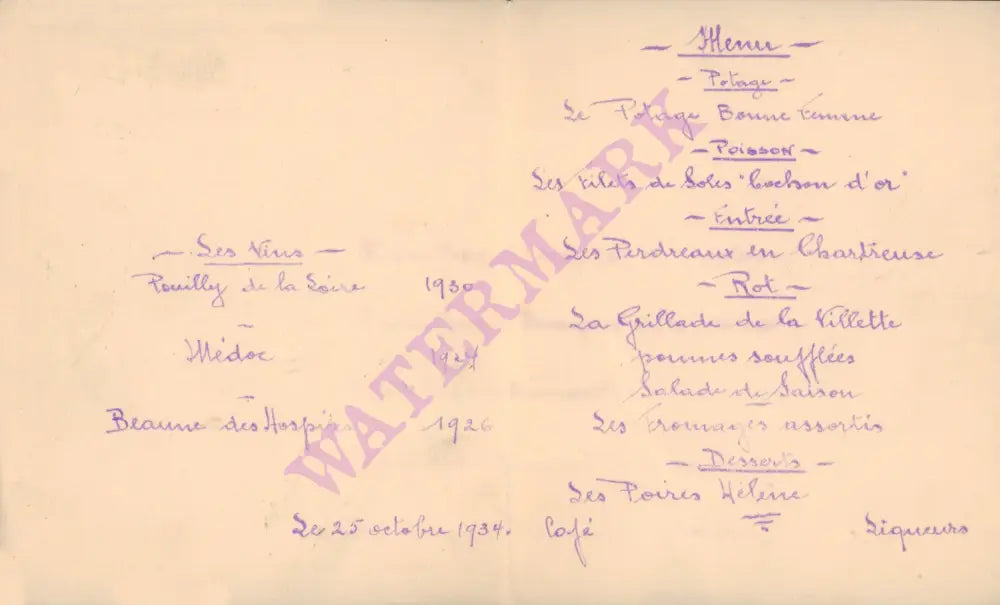 — Les Vins —
Pouilly de la Loire 1930
Médoc
Beaune des Hospices 1926
Le 25 octobre 1934.
— Menu —
- Potage -
Le Potage Bonne Femme
- Poisson -
Les Filets de Soles "Cochon d'or"
- Entrée -
Les Perdreaux en Chartreuse
- Rot -
La Grillade de la Villette
pommes soufflées
Salade de Saison
Les Fromages assortis
- Desserts -
Les Poires Hélène
Café Liqueurs
WATERMARK